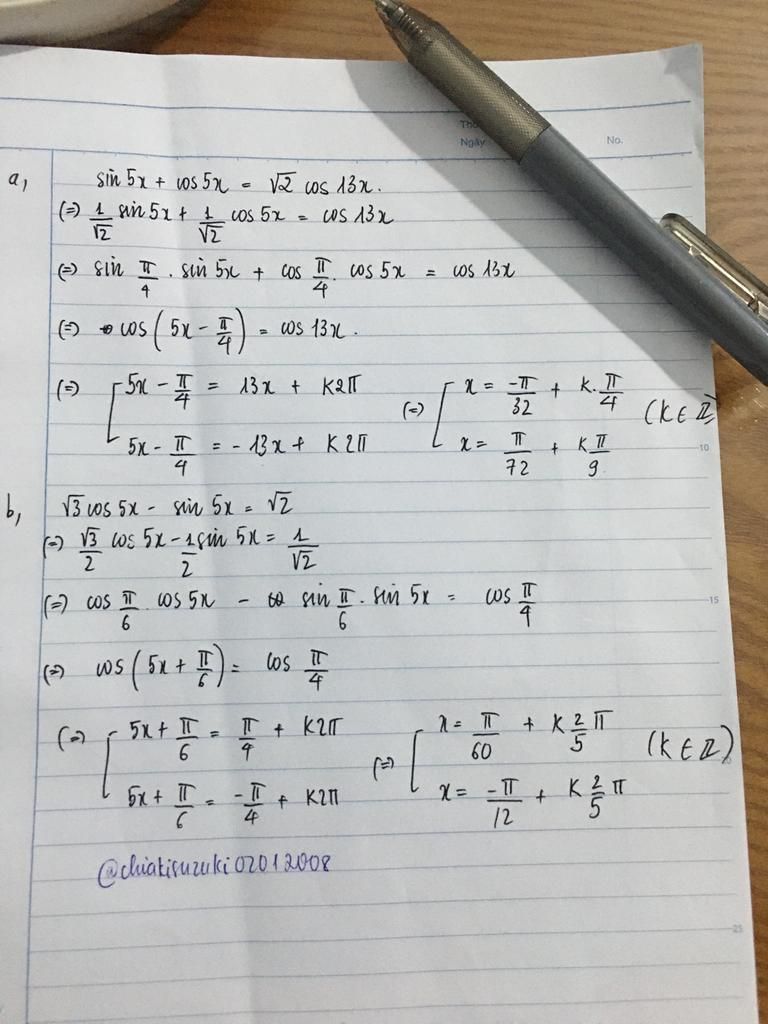 Ngày
No.
a, sin 5x + cos 5x = √2 cos 13x.
(=) 1/√2 sin 5x + 1/√2 cos 5x = cos 13x
(=) sin π/4 . sin 5x + cos π/4 . cos 5x = cos 13x
(=) cos(5x - π/4) = cos 13x.
(=) [ 5x - π/4 = 13x + K2π (=) [ x = -π/32 + K.π/4 (K ∈ ℤ)
5x - π/4 = -13x + K2π x = π/72 + Kπ/9
10
b, √3 cos 5x - sin 5x = √2
(=) √3/2 cos 5x - 1/2 sin 5x = 1/√2
(=) cos π/6 cos 5x - sin π/6 . sin 5x = cos π/4
15
(=) cos(5x + π/6) = cos π/4
(=) [ 5x + π/6 = π/4 + K2π (=) [ x = π/60 + K 2/5 π (K ∈ ℤ)
5x + π/6 = -π/4 + K2π x = -π/12 + K 2/5 π
@chiakisuzuki02012008
25